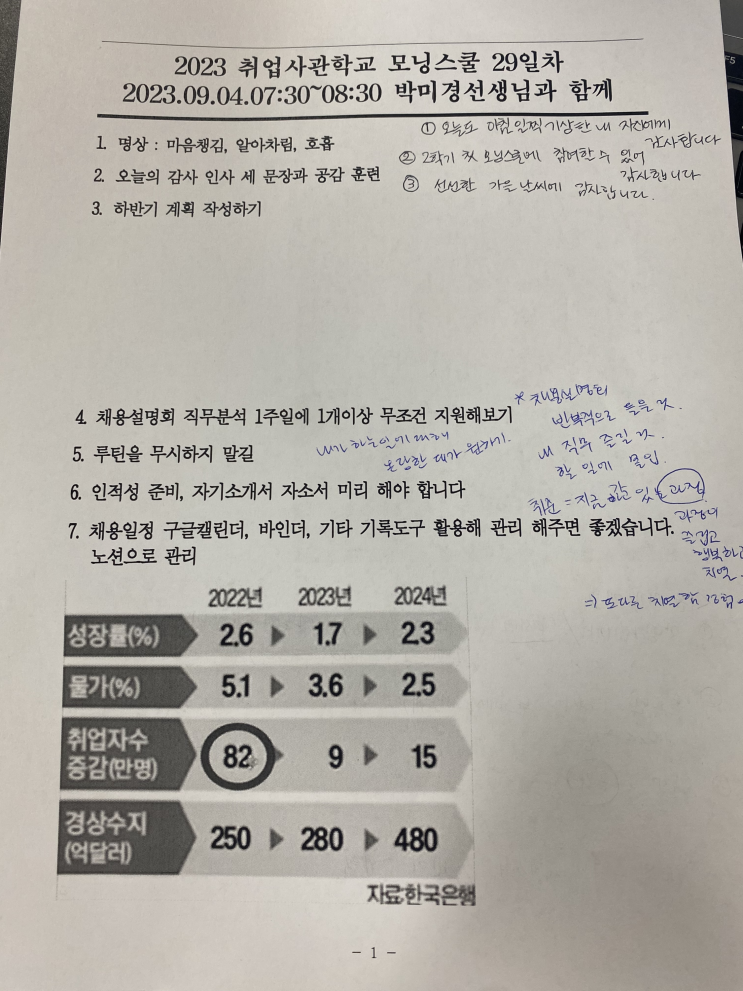 2023 취업사관학교 모닝스쿨 29일차
2023.09.04.07:30~08:30 박미경선생님과 함께
1. 명상 : 마음챙김, 알아차림, 호흡
2. 오늘의 감사 인사 세 문장과 공감 훈련
3. 하반기 계획 작성하기
① 오늘도 아침 일찍 기상한 내 자신에게
감사합니다
② 2학기 첫 모닝스쿨에 참여할 수 있어
감사합니다
③ 선선한 가을 날씨에 감사합니다.
4. 채용설명회 직무분석 1주일에 1개이상 무조건 지원해보기
5. 루틴을 무시하지 말길
내가 하는 일에 대해
온당한 대가 원하기.
* 채용설명회
반복적으로 들을 것.
내 직무 즐길 것.
할 일에 몰입.
6. 인적성 준비, 자기소개서 자소서 미리 해야 합니다
취준 = 지금 하고 있는 과정
7. 채용일정 구글캘린더, 바인더, 기타 기록도구 활용해 관리 해주면 좋겠습니다.
노션으로 관리
과정이
즐겁고
행복하고
치열
⇒ 또다른 치열함 경험
2022년 2023년 2024년
성장률(%) 2.6 1.7 2.3
물가(%) 5.1 3.6 2.5
취업자수
증감(만명) 82 9 15
경상수지
(억달러) 250 280 480
자료:한국은행
- 1 -
F5